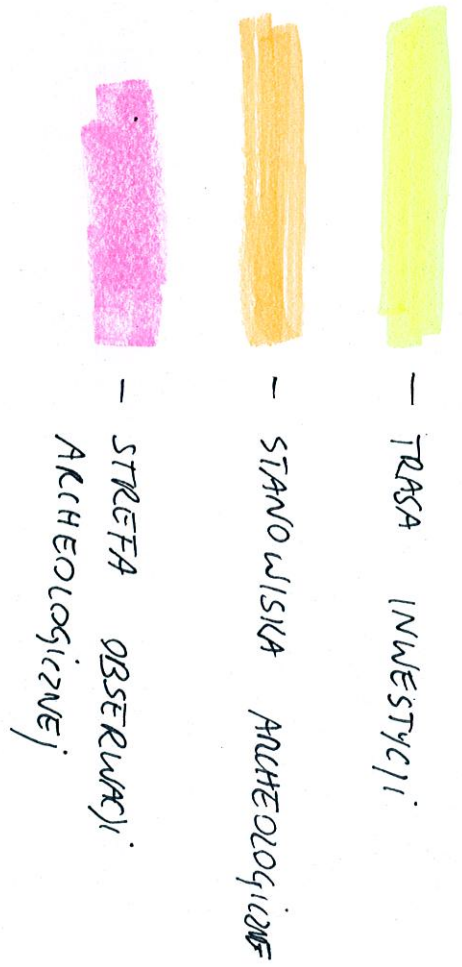 — TRASA INWESTYCJI
— STANOWISKA ARCHEOLOGICZNE
— STREFA OBSERWACJI
ARCHEOLOGICZNEJ